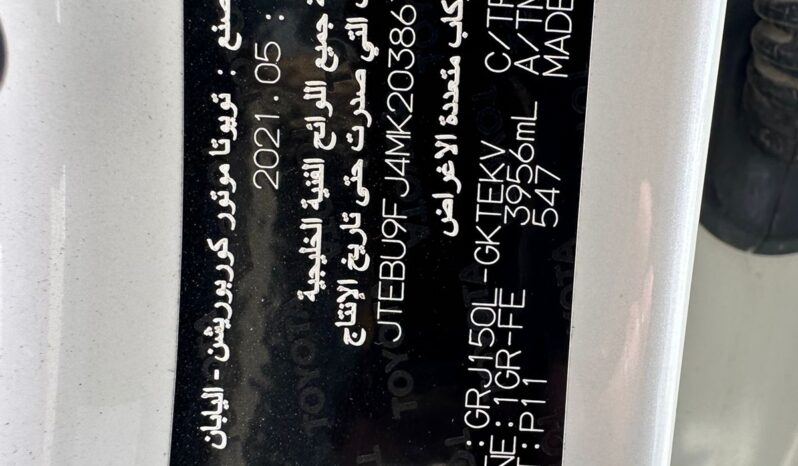 صنع : تويوتا موتور كوربوريشن - اليابان
2021.05 :
جميع اللوائح الفنية الخليجية
التي صدرت حتى تاريخ الإنتاج
JTEBU9FJ4MK20386
ركاب متعددة الاغراض
:GRJ150L-GKTEKV C/TR
NE:1GR-FE 3956mL A/TM
T:P11 547 MADE
TOYOTA